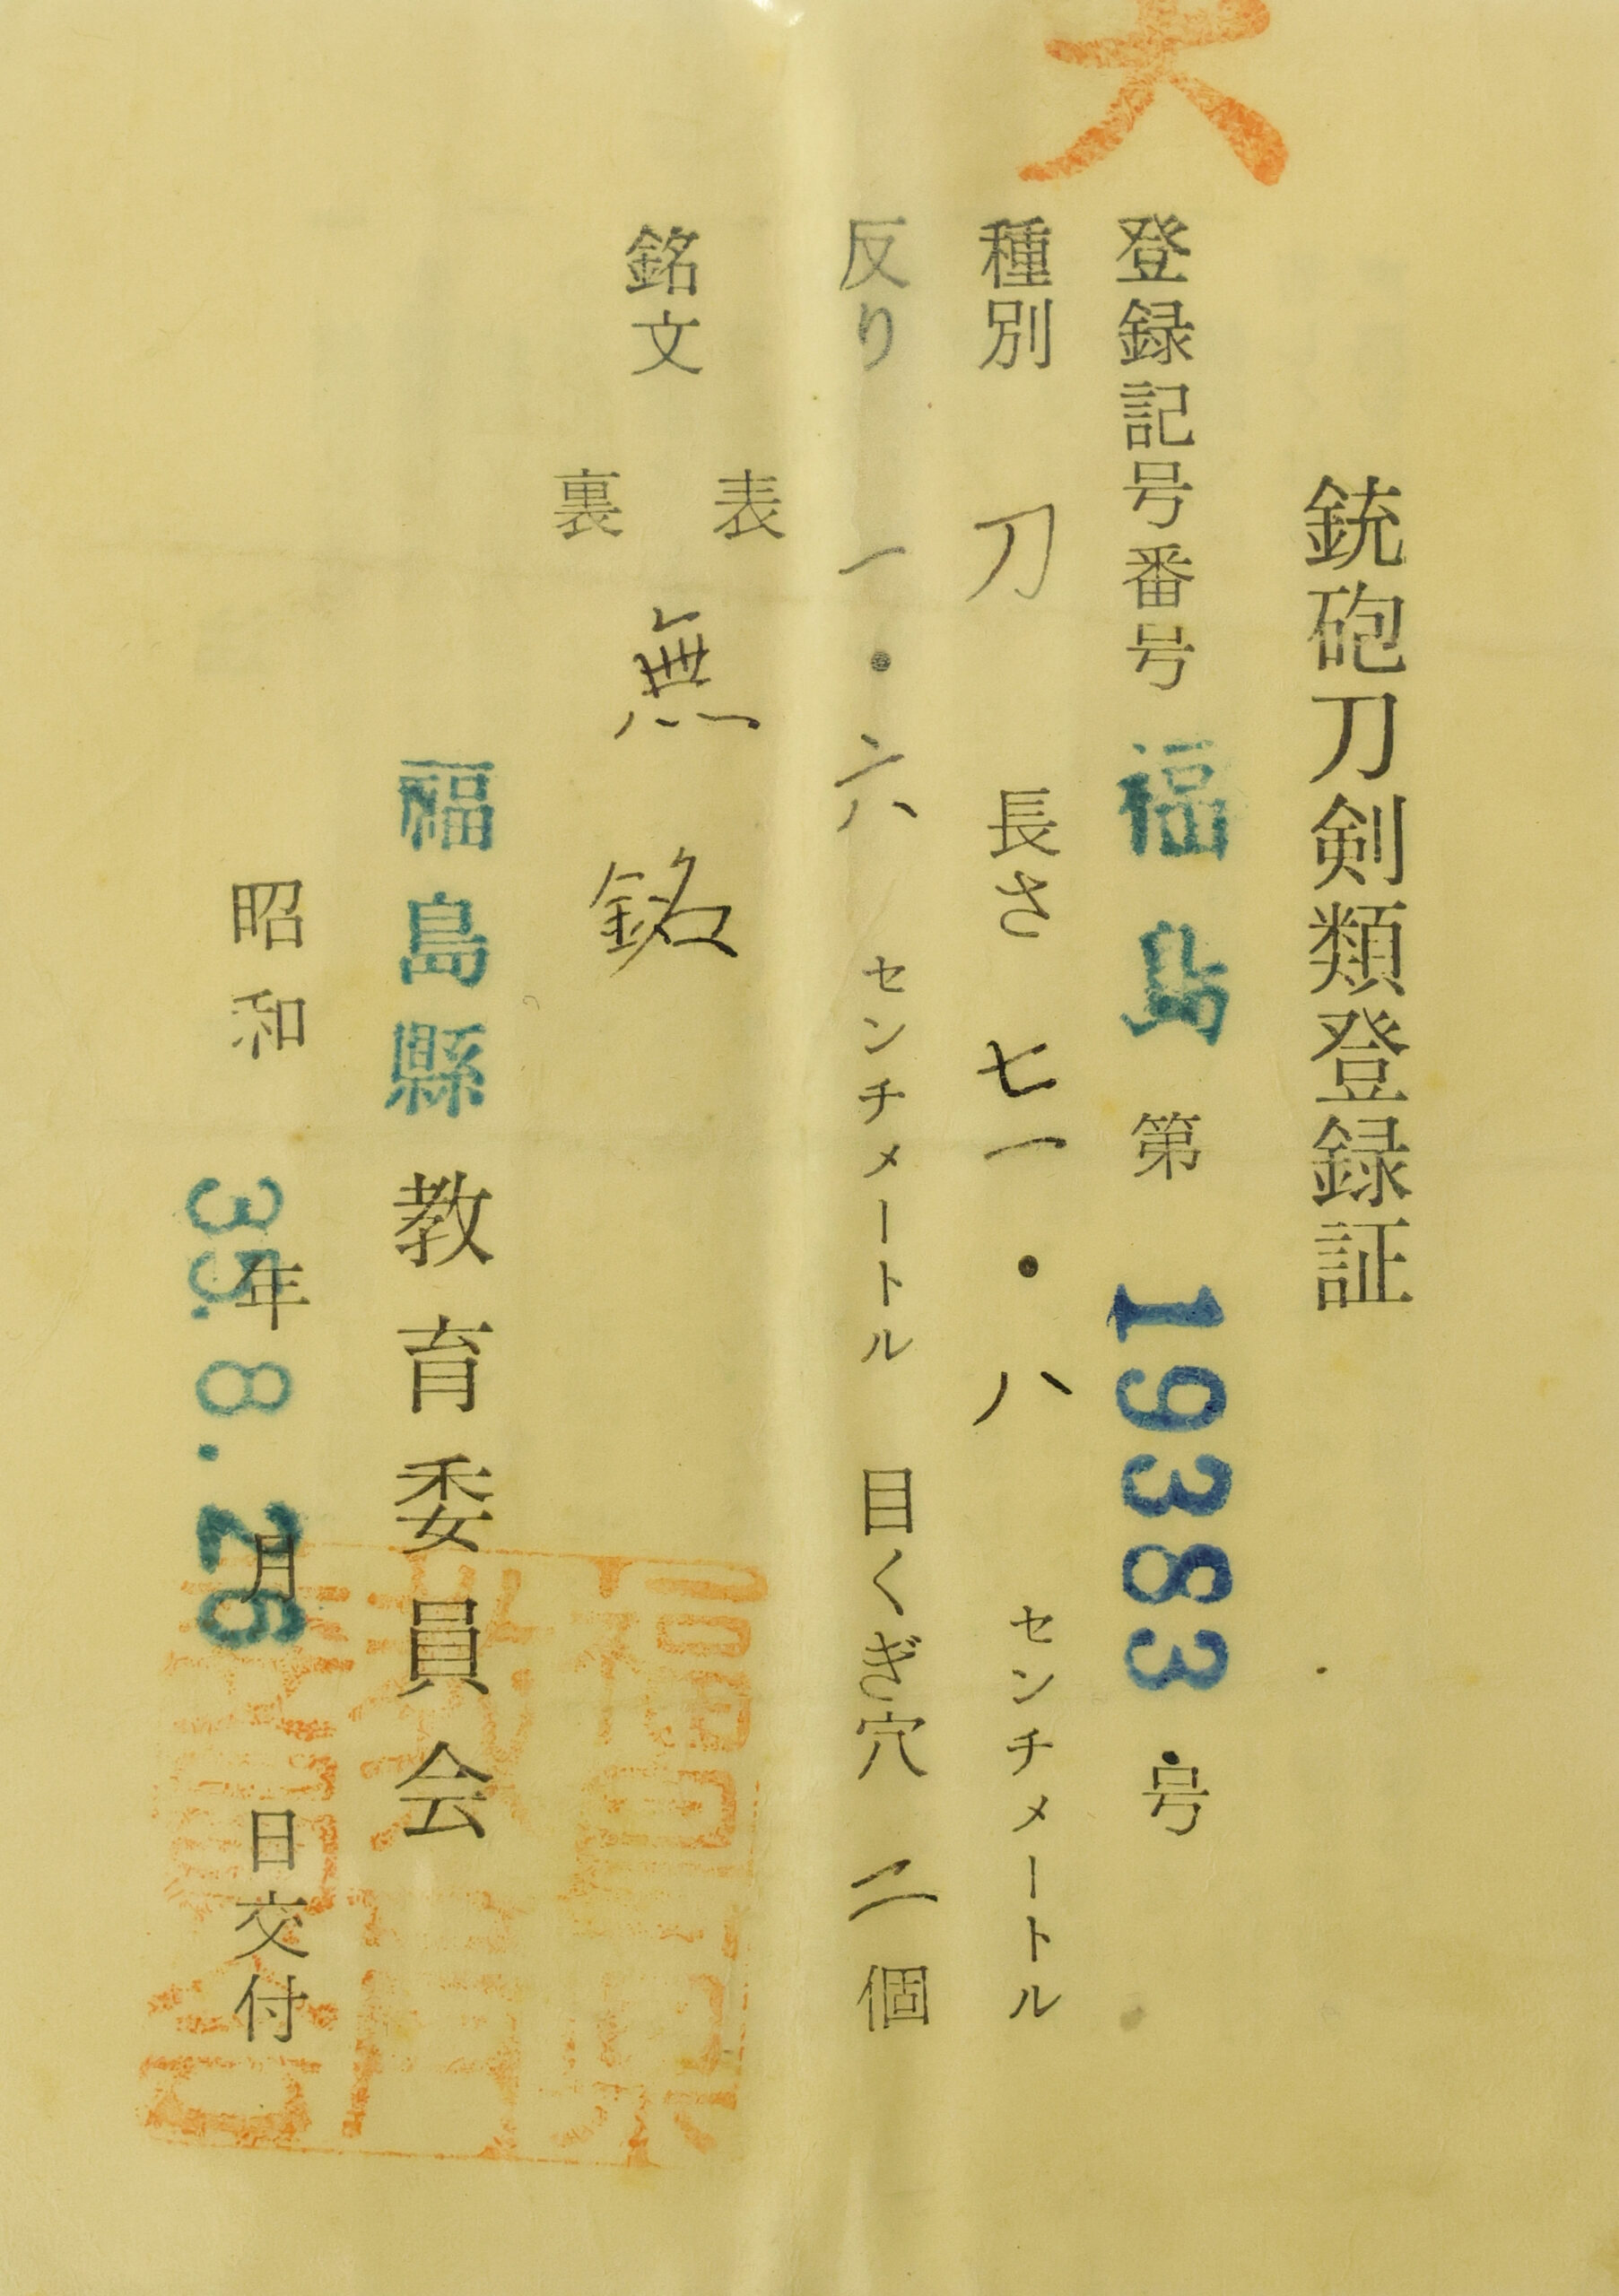 大
銃砲刀剣類登録証
登録記号番号 福島 第 19383 号
種別 刀 長さ 七一・八 センチメートル
反り 一・六 センチメートル 目くぎ穴 二 個
銘文
表
裏
無銘
福島縣教育委員会
昭和 35.8.26 年 月 日交付